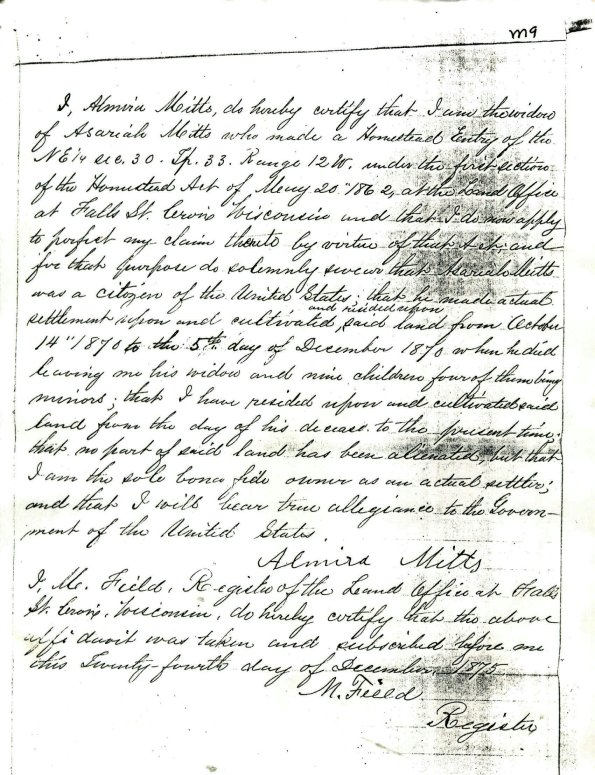 m9
I, Almira Mitts, do hereby certify that I am the widow
of Asariah Mitts who made a Homestead Entry of the
NE 1/4 sec. 30. Tp. 33. Range 12 W. under the first section
of the Homestead Act of May 20" 1862, at the Land Office
at Falls St. Croix Wisconsin and that I do now apply
to perfect my claim thereto by virtue of that Act, and
for that purpose do solemnly swear that Asariah Mitts
was a citizen of the United States; that he made actual
and resided upon
settlement upon and cultivated said land from October
14" 1870 to the 5th day of December 1870 when he died
leaving me his widow and nine children four of them being
minors; that I have resided upon and cultivated said
land from the day of his decease to the present time;
that no part of said land has been alienated, but that
I am the sole bona fide owner as an actual settler;
and that I will bear true allegiance to the Govern-
ment of the United States.
Almira Mitts
I, M. Field, Register of the Land Office at Falls
St. Croix, Wisconsin, do hereby certify that the above
affidavit was taken and subscribed before me
this Twenty fourth day of December 1875
M. Field
Register